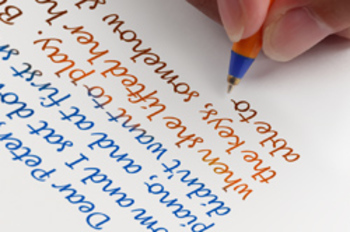 Dear Peter
om and I sat dow
piano, and at first s
didn't want to play. B
when she lifted her ha
the keys, somehow s
able to